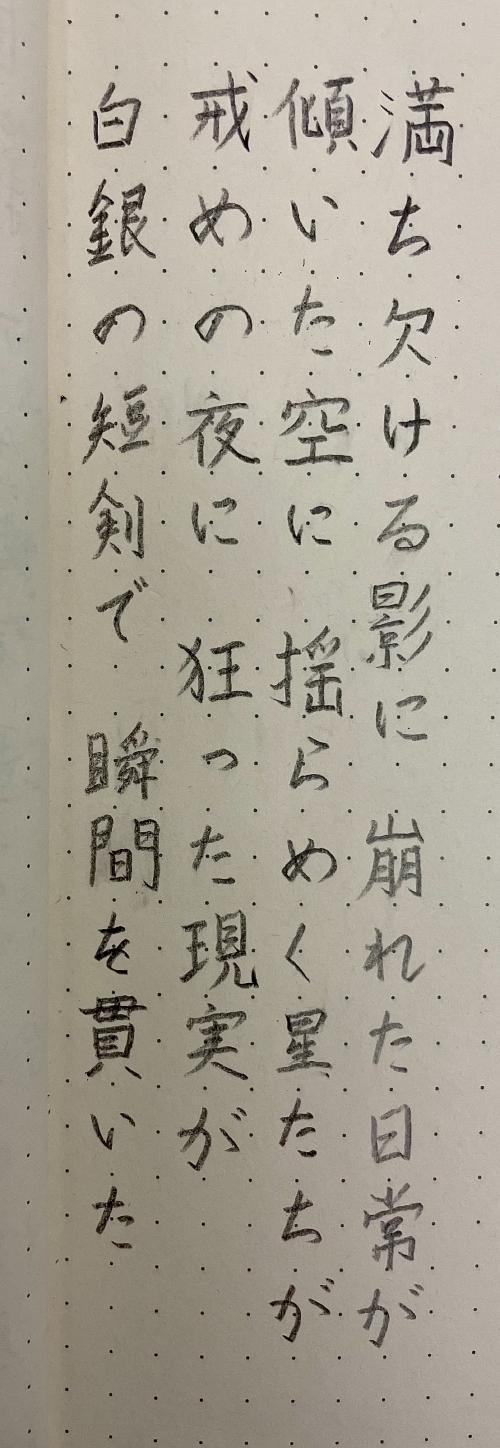 満ち欠ける影に　崩れた日常が
傾いた空に　揺らめく星たちが
戒めの夜に　狂った現実が
白銀の短剣で　瞬間を貫いた